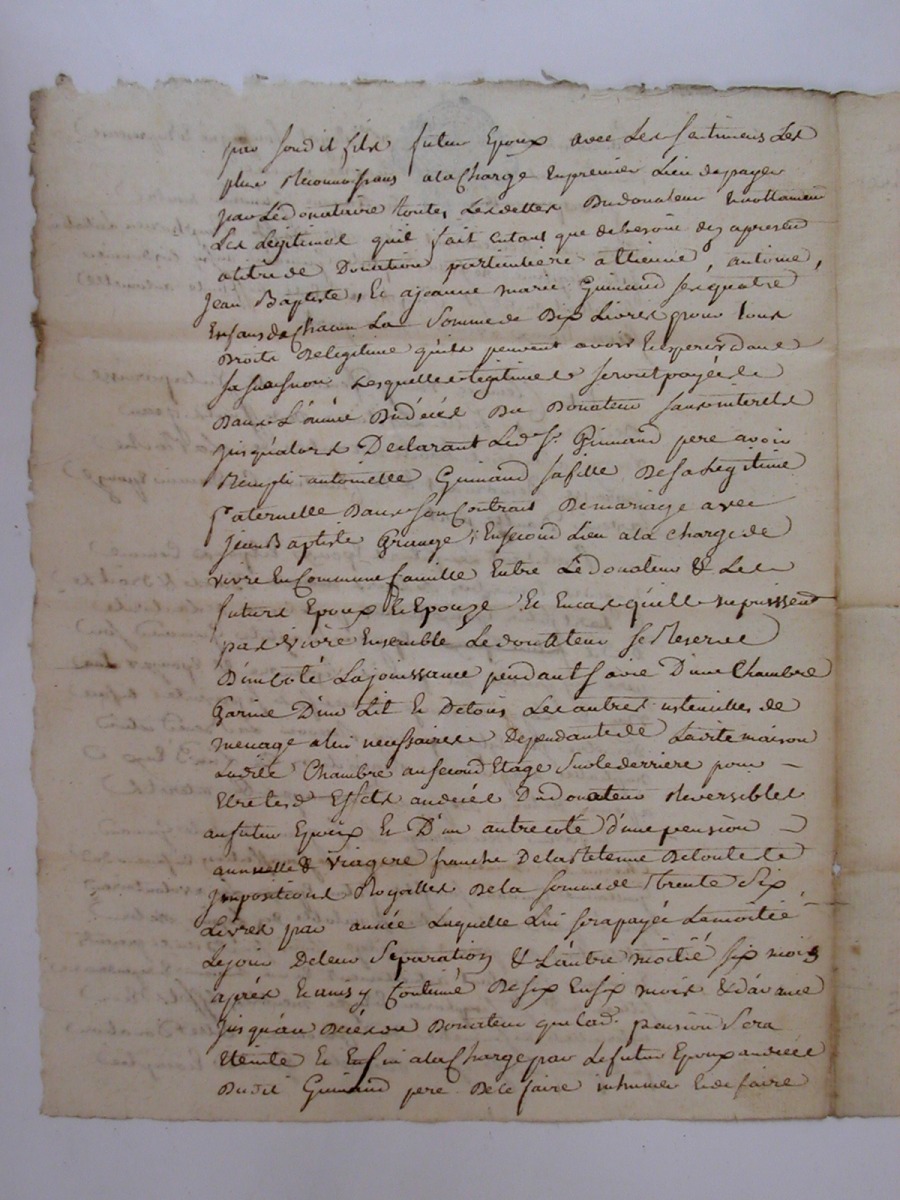 par sondit fils futur Epoux avec Les sentimens Les
plus Reconnoissans alaCharge Enpremier Lieu depayer
par Ledonataire toutes Lesdettes Dudonateur Enottament
Les Légitimes quil fait Entant que debesoins des apresent
atitre de Donation particuliere a Etienne, antoine,
Jean Baptiste, Et ajeanne marie Guinand sesquatre
Enfans de Chacun La Sommede Dix Livres pour tous
Droits DeLegitime quils peuvent avoir Et esperer dans
sasuccession Lesquelles Legitimes serontpayées
Dans L'année Dudécés Du Donateur sansinterets
Jusquálors Declarant Led. Sr. Guinand pere avoir
Rempli antoinette Guinand safille DesaLegitime
Paternelle Dans sonContrat Demariage avec
JeanBaptiste Grange ; Ensecond Lieu ala charge de
vivre EnCommune famille Entre Ledonateur & Les
futurs Epoux Et Epouze Et Encas quils nepussent
pas vivre Ensemble Ledonateur seReserve
Dun Coté Lajouissance pendant savie D'une Chambre
Garnie D'un Lit Et Detous Les autres ustencilles de
menage a lui necessaires Dépendants de Ladite maison
Ladite Chambre ausecond Etage Surlederriere pour
Etre Lesd. Effets audécés Dudonateur Reversibles
aufutur Epoux Et D'un autre coté d'une pension
annuelle & viagere franche DelaRetenue De toutes
Jmpositions Royalles De la somme de Trente Six
Livres par année Laquelle Lui serapayée Lamoitié
Lejour Deleur Separation & L'autre moitié six mois
aprés Et ainsy Continué De six En six mois & d'avance
Jusqu'au Décés du Donateur que Lad. pension Sera
Eteinte Et Enfin alaCharge par Lefutur Epoux audécés
Dudit Guinand pere De le faire inhumer Et de faire